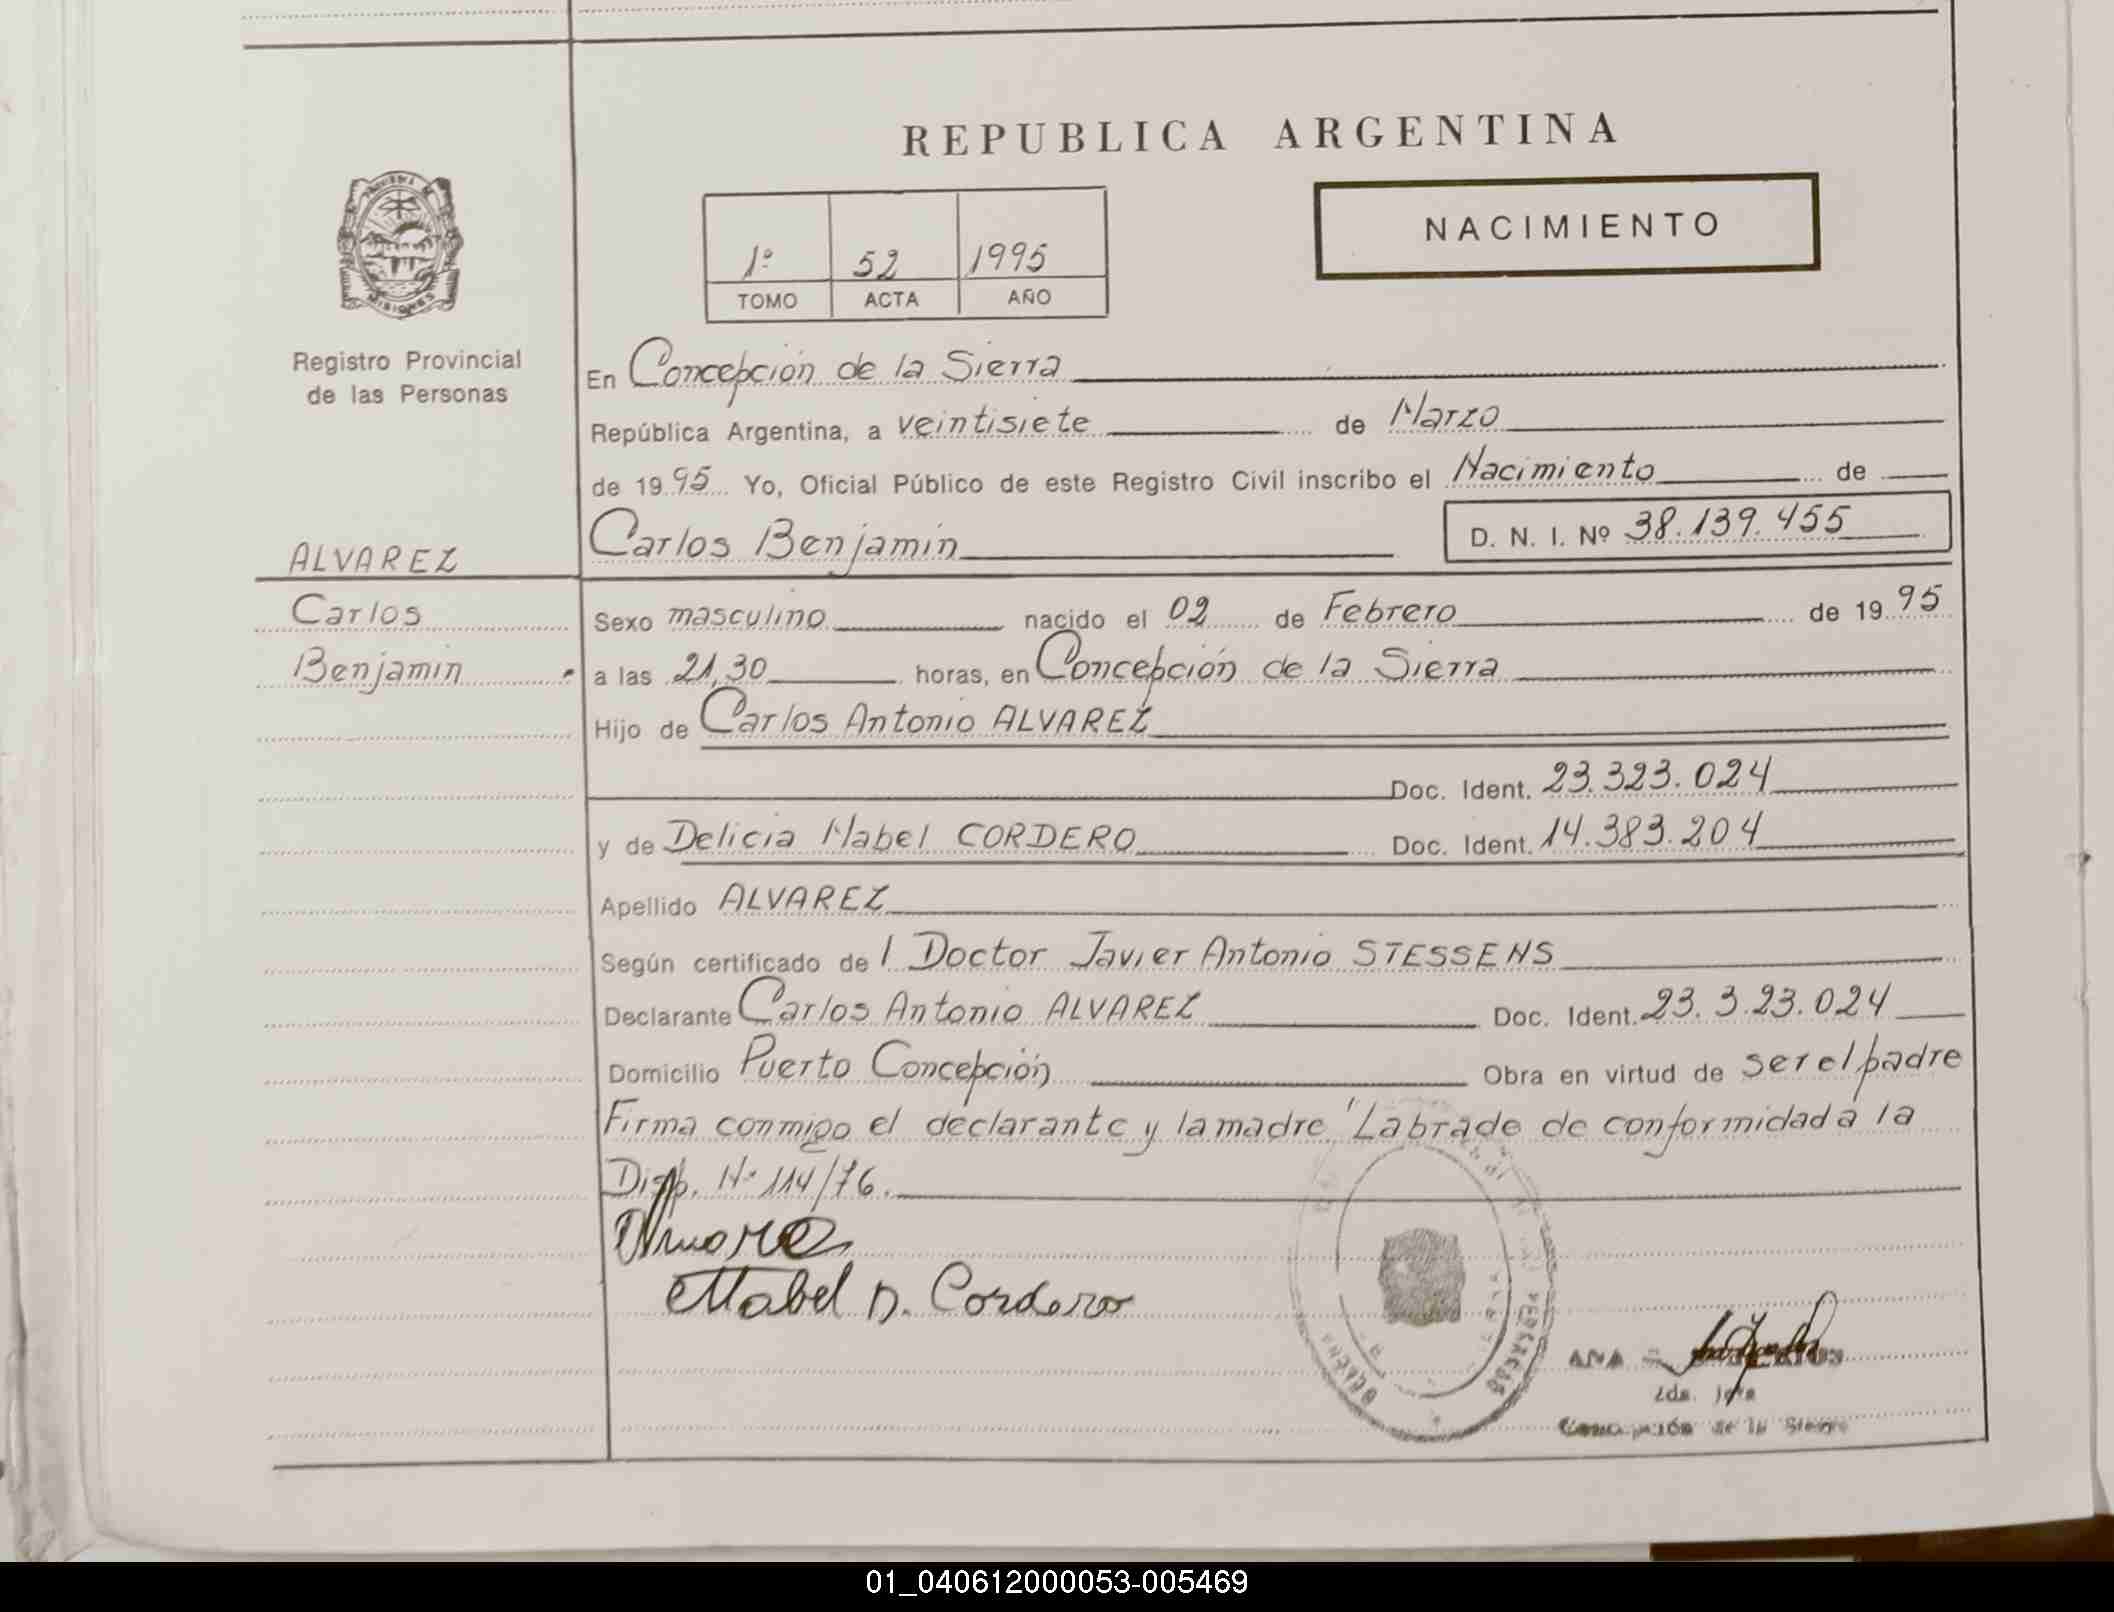 REPUBLICA ARGENTINA
NACIMIENTO
1º 52 1995
TOMO ACTA AÑO
MISIONES
Registro Provincial
de las Personas
En Concepción de la Sierra
República Argentina, a veintisiete de Marzo
de 1995 Yo, Oficial Público de este Registro Civil inscribo el Nacimiento de
Carlos Benjamin D. N. I. Nº 38.139.455
ALVAREZ
Carlos
Benjamin
Sexo masculino nacido el 02 de Febrero de 1995
a las 21,30 horas, en Concepción de la Sierra
Hijo de Carlos Antonio ALVAREZ
Doc. Ident. 23.323.024
y de Delicia Mabel CORDERO Doc. Ident. 14.383.204
Apellido ALVAREZ
Según certificado de l Doctor Javier Antonio STESSENS
Declarante Carlos Antonio ALVAREZ Doc. Ident. 23.323.024
Domicilio Puerto Concepción Obra en virtud de ser el padre
Firma conmigo el declarante y la madre "Labrade de conformidad a la
Disp. Nº 114/76.
Mabel D. Cordero
ANA
Concepción de la Sierra
01_040612000053-005469